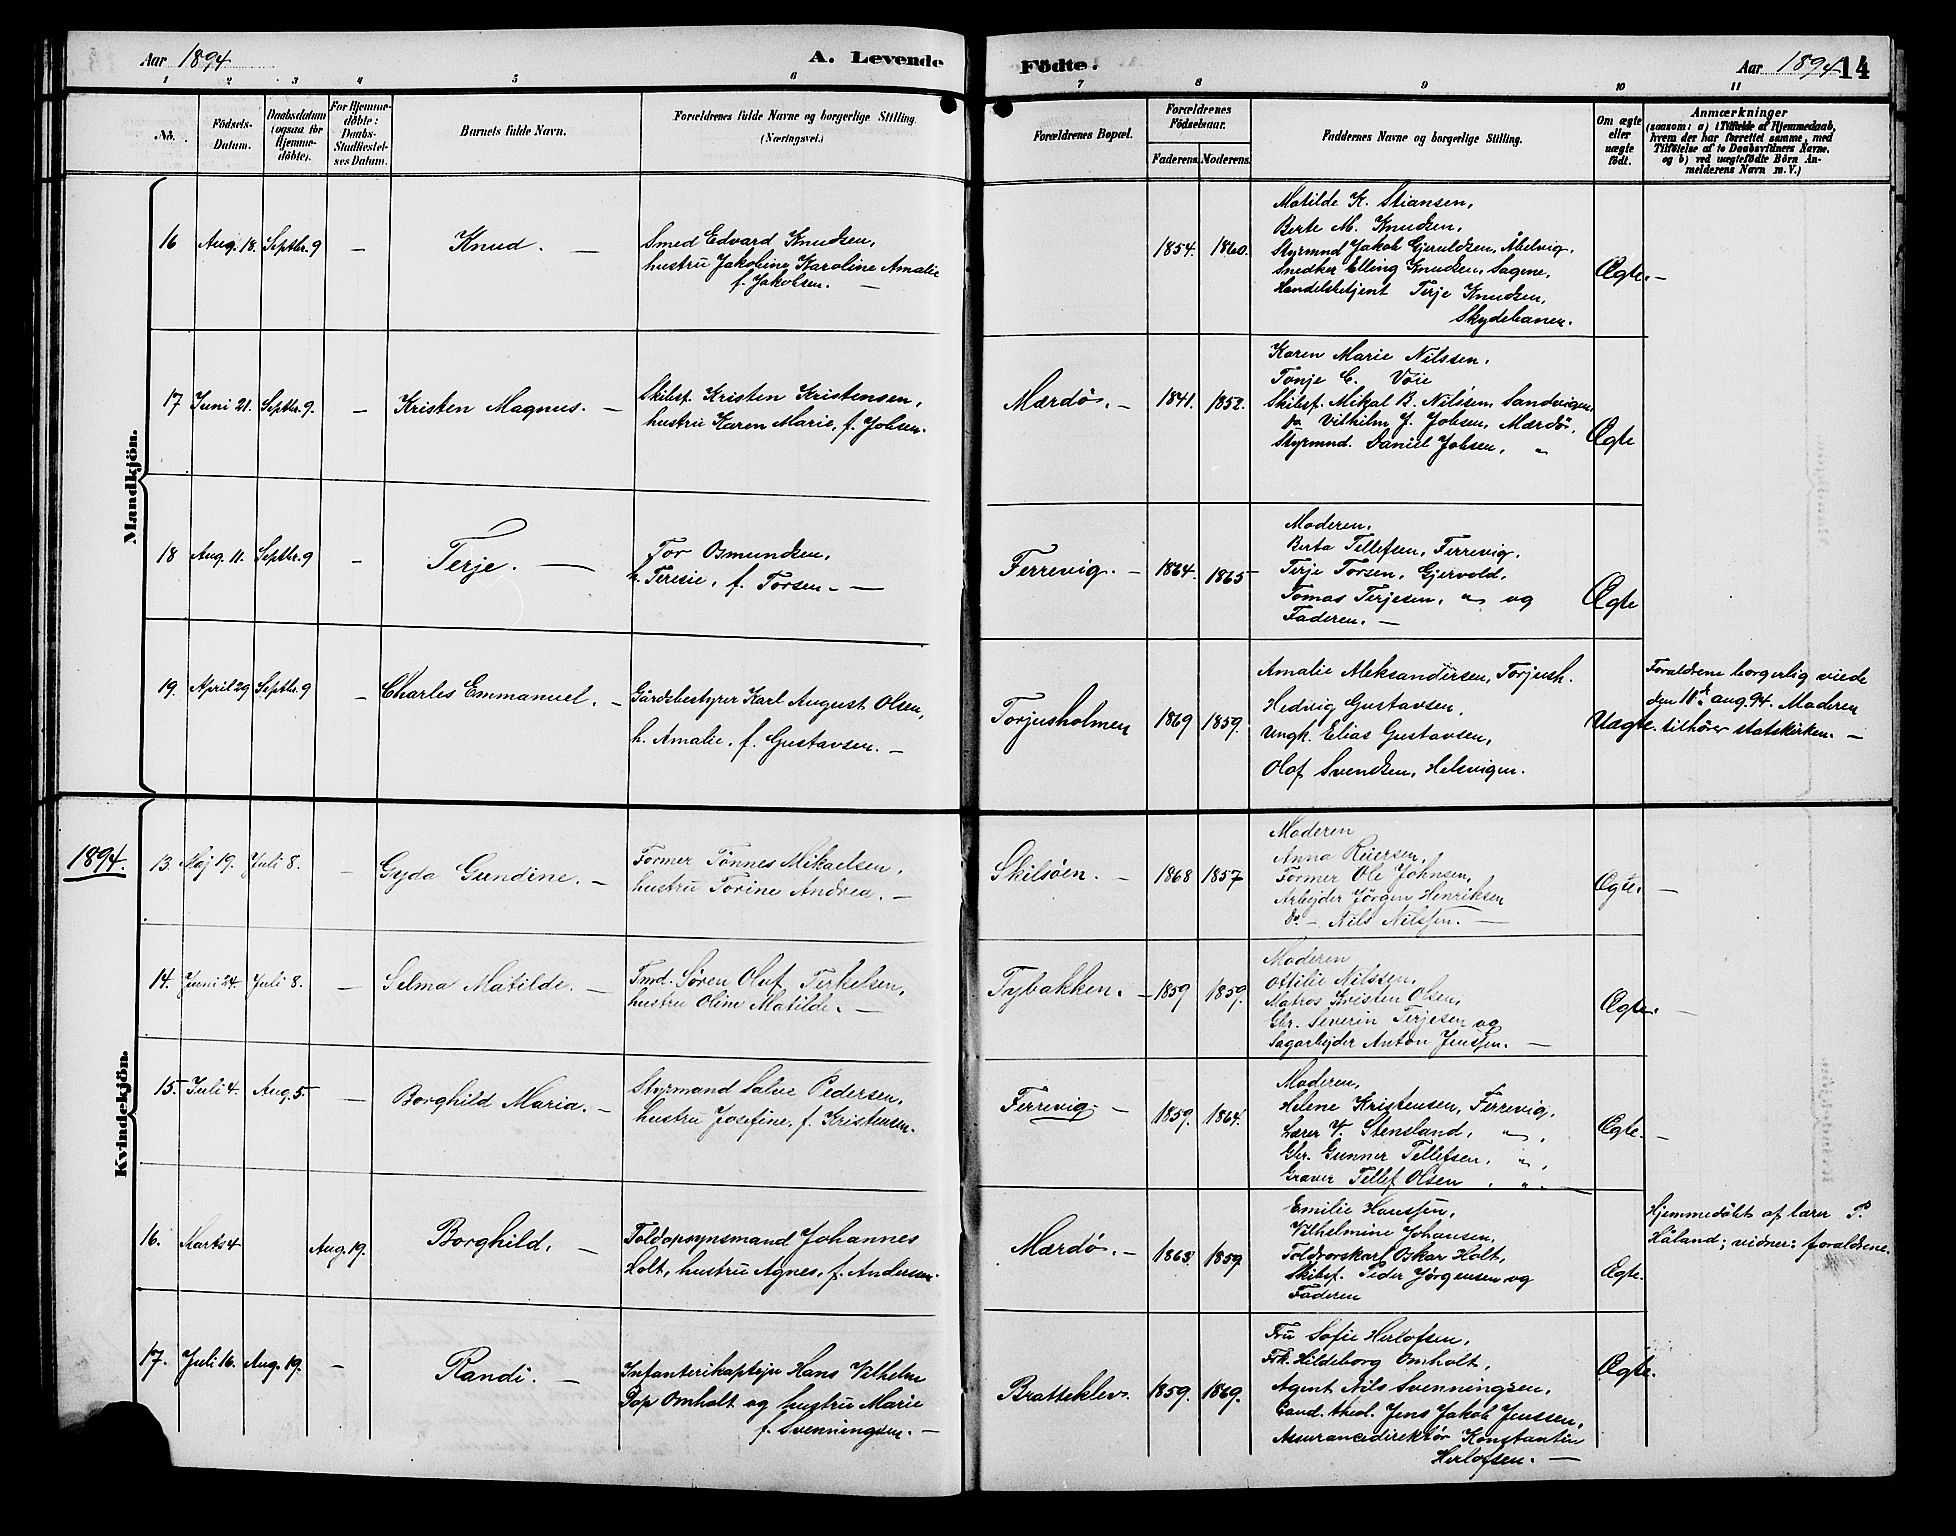 Aar 1894
A. Levende
Födte.
Aar 1894
14
1 2 3 4 5 6 7 8 9 10 11
No.
Födsels-
Datum.
Daabsdatum
(ogsaa for
Hjemme-
döbte).
For Hjemme-
döbte:
Daabs-
Stadfæstel-
ses Datum.
Barnets fulde Navn.
Forældrenes fulde Navne og borgerlige Stilling.
(Næringsvei.)
Forældrenes Bopæl.
Forældrenes
Födselsaar.
Faderens. Moderens.
Faddernes Navne og borgerlige Stilling.
Om ægte
eller
uægte
födt.
Anmærkninger
(saasom: a) i Tilfælde af Hjemmedaab,
hvem der har forrettet samme, med
Tilföielse af to Daabsvidners Navne.
og b) ved uægtefödte Börn An-
melderens Navn m. V.)
Mandkjön.
16 Aug. 18. Septbr. 9 — Knud. —
Smed Edvard Knudsen,
hustru Jakobine Karoline Amalie
f. Jakobsen. —
1854. 1860.
Matilde K. Stiansen,
Berte M. Knudsen,
Styrmnd Jakob Gjeruldsen, Åbelvig.
Snedker Elling Knudsen, Sagene,
Handelsbetjent Terje Knudsen,
Skydebanen.
Ægte. —
17 Juni 21. Septbr. 9. — Kristen Magnus. —
Skibsf. Kristen Kristensen,
hustru Karen Marie, f. Jobsen.
Mærdø. — 1841. 1852.
Karen Marie Nilssen,
Tonje C. Voie
Skibsf. Mikal B. Nilssen, Sandvigen,
Do Vilhelm J. Jobsen, Mærdø,
Styrmnd. Daniel Jobsen, "
Ægte
18 Aug. 11. Septbr. 9 — Terje. —
Tor Osmundsen,
h. Teresie, f. Torsen. —
Ferrevig. — 1864. 1865
Moderen,
Berta Tellefsen, Ferrevig.
Terje Torsen, Gjervold,
Tomas Terjesen, " og
Faderen. —
Ægte
19. April 29 Septbr. 9 — Charles Emmanuel. —
Gårdsbestyrer Karl August Olsen,
h. Amalie, f. Gustavsen. —
Torjusholmen 1869 1859.
Amalie Aleksandersen, Torjush.
Hedvig Gustavsen,
Ungk. Elias Gustavsen,
Olaf Svendsen, Helsvigen.
Uægte.
Forældrene borgerlig viede
den 10de aug. 94. Moderen
tilhører statskirken. —
1894.
Kvindekjön.
13. Maj 19. Juli 8. — Gyda Gundine. —
Former Tønnes Mikaelsen,
hustru Torine Andrea. —
Skilsøen. — 1868 1857
Moderen
Anna Reiersen,
Former Ole Johnsen,
Arbejder Jørgen Henriksen
Do — Nils Nilssen. —
Ægte. —
14. Juni 24. Juli 8. — Selma Matilde. —
Tmd. Søren Oluf Terkelsen,
hustru Oline Matilde. —
Tybakken. — 1859 1859.
Moderen
Ottilie Nilssen,
Matros Kristen Olsen,
Gbr. Severin Terjesen og
Sagarbejder Anton Jenssen. —
Ægte. —
15. Juli 4. Aug. 5. — Borghild Maria. —
Styrmand Salve Pedersen,
hustru Josefine, f. Kristensen.
Ferrevig. — 1859. 1864.
Moderen,
Helene Kristensen, Ferrevig,
Lærer V. Stensland, " ,
Gbr. Gunner Tellefsen, " ,
Graver Tellef Olsen , " . —
Ægte. —
16. Marts 4 Aug. 19. Borghild. —
Toldopsynsmand Johannes
Holt, hustru Agnes, f. Andersen.
Mærdø. — 1863 1859
Emilie Hanssen,
Vilhelmine Johansen,
Toldrorskarl Oskar Holt,
Skibsf. Peder Jørgensen og
Faderen
Ægte.
Hjemmedøbt af lærer P.
Håland; vidner: forældrene.
17. Juli 16. Aug. 19. — Randi. —
Infanterikaptejn Hans Vilhelm
Pop Omholt og hustru Marie
f. Svenningsen. —
Bratteklev. 1859. 1869.
Fru Sofie Herlofsen,
Frk. Hildeborg Omholt,
Agent Nils Svenningsen,
Cand. theol. Jens Jakob Jenssen,
Assurancedirektør Konstantin
Herlofsen. —
Ægte.